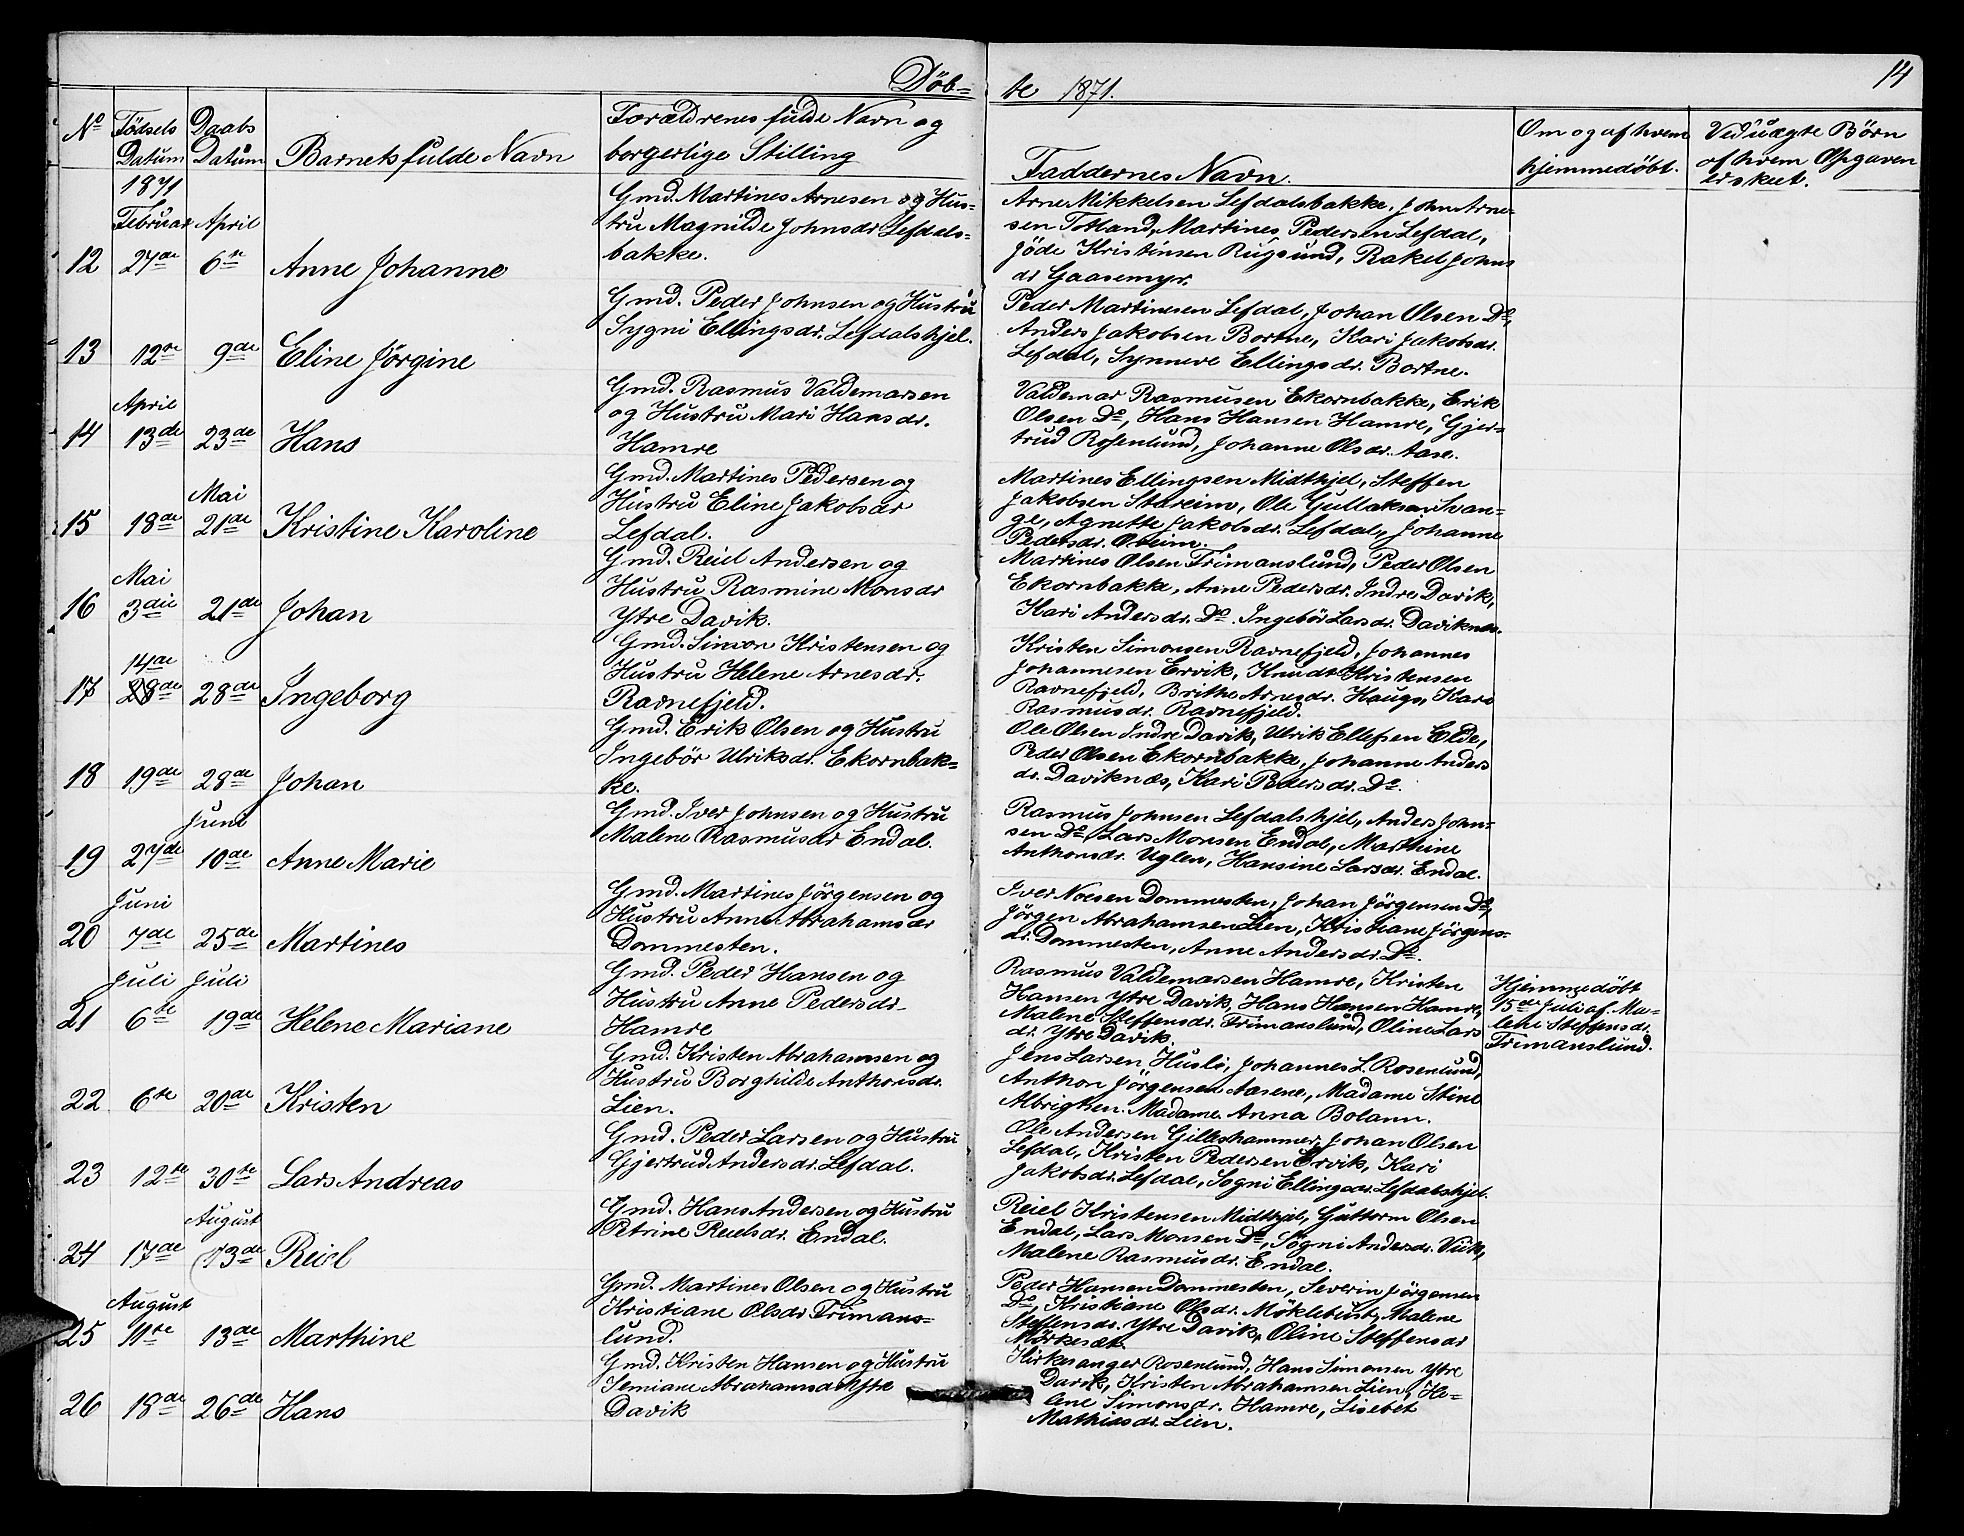 Döb-te 1871.
14
No
Födsels Datum
Daabs Datum
Barnets fulde Navn
Forældrenes fulde Navn og
borgerlige Stilling
Faddernes Navn.
Om og af hvem
hjemmedöbt.
Ved uægte Börn
af hvem Opgaven
er skeet.
1871
Februar April
12 27de 6te Anne Johanne
Gmd. Martines Arnesen og Hus-
tru Magnilde Johnsdr. Lefdals-
bakke.
Arne Mikkelsen Lefdalsbakke, John Arne-
sen Totland, Martines Pedersen Lefdal,
Jöde Kristinsen Rugsund, Rakel Johns
dr Gaasemyr.
13 12te 9de Eline Jörgine
Gmd. Peder Johnsen og Hustru
Sygni Ellingsdr. Lefdalshjel.
Peder Martinesen Lefdal, Johan Olsen Do,
Anders Jakobsen Bortne, Kari Jakobsdr.
Lefdal, Synneve Ellingsdr. Bortne.
April
14 13de 23de Hans
Gmd. Rasmus Valdemarsen
og Hustru Mari Hansdr.
Hamre
Valdemar Rasmusen Ekornbakke, Erik
Olsen Do, Hans Hansen Hamre, Gjer-
trud Rosenlund, Johanne Olsdr. Aase.
Mai
15 18de 21de Kristine Karoline
Gmd. Martines Pedersen og
Hustru Eline Jakobsdr
Lefdal.
Martines Ellingsen Midthjel, Steffen
Jakobsen Stareim, Ole Gullaksen Svan-
ge, Agnette Jakobsdr. Lefdal, Johanne
Pedersdr. Oreim.
Mai
16 3die 21de Johan
Gmd. Reiel Andersen og
Hustru Rasmine Monsdr
Ytre Davik.
Martines Olsen Frimanslund, Peder Olsen
Ekornbakke, Anne Pedersdr. Indre Davik,
Kari Andersdr. Do. Ingebör Larsdr. Daviknes.
14de
17 28de 28de Ingeborg
Gmd. Simon Kristensen og
Hustru Helene Arnesdr.
Ravnefjeld.
Kristen Simonsen Ravnefjeld, Johannes
Johannesen Ervik, Knudt Kristensen
Ravnefjeld, Brithe Arnesdr. Haugs, Kari
Rasmusdr. Ravnefjeld.
18 19de 28de Johan
Gmd. Erik Olsen og Hustru
Ingebör Ulriksdr. Ekornbak-
ke.
Ole Olsen Indre Davik, Ulrik Ellefsen Elde,
Peder Olsen Ekornbakke, Johanne Anders
dr. Daviknæs, Kari Pedersdr. Do.
Juni
19 27de 10de Anne Marie
Gmd. Iver Johnsen og Hustru
Malene Rasmusdr Endal.
Rasmus Johnsen Lefdalshjel, Anders John-
sen Do, Lars Monsen Endal, Marthine
Anthonsdr. Uglen, Hansine Larsdr. Endal.
Juni
20 7de 25de Martines
Gmd. Martines Jörgensen og
Hustru Anne Abrahamsdr
Dommesten.
Iver Noesen Dommesten, Johan Jörgensen Do,
Jörgen Abrahamsen Lien, Kristiane Jörgens-
dr. Dommesten, Anne Andersdr. Do.
Juli Juli
21 6te 19de Helene Mariane
Gmd. Peder Hansen og
Hustru Anne Pedersdr.
Hamre
Rasmus Valdemarsen Hamre, Kristen
Hansen Ytre Davik, Hans Hansen Hamre,
Malene Steffensdr. Frimanslund, Oline Lars
dr. Ytre Davik.
Hjemmedöbt
15de Juli af Ma-
lene Steffensdr.
Frimanslund.
22 6te 20de Kristen
Gmd. Kristen Abrahamsen og
Hustru Borghilde Anthonsdr.
Lien.
Jens Larsen Husli, Johannes L. Rosenlund,
Anthon Jörgensen Aasene, Madame Stine
Albrigtsen. Madame Anna Bolann.
23 12te 30te Lars Andreas
Gmd. Peder Larsen og Hustru
Gjertrud Andersdr. Lefdal.
Ole Andersen Gilleshammer, Johan Olsen
Lefdal, Kristen Pedersen Ervik, Kari
Jakobsdr. Lefdal, Sogni Ellingsdr. Lefdalshjel.
August
24 17de 13de Reiel
Gmd. Hans Andersen og Hustru
Petrine Reielsdr. Endal.
Reiel Kristensen Midthjel, Guttorm Olsen
Endal, Lars Monsen Do, Sogni Andersdr. Viik,
Malene Rasmusdr. Endal.
August
25 11te 13de Marthine
Gmd. Martines Olsen og Hustru
Kristiane Olsdr Frimans-
lund.
Peder Hansen Dommesten, Severin Jörgensen
Do, Kristiane Olsdr. Möklebust, Malene
Steffensdr. Ytre Davik, Oline Steffensdr
Mörkesæt.
26 18de 26de Hans
Gmd. Kristen Hansen og Hustru
Semiane Abrahamsdr Ytre
Davik
Kirkesanger Rosenlund, Hans Simonsen Ytre
Davik, Kristen Abrahamsen Lien, He-
lene Simonsdr. Hamre, Lisebet
Mathiasdr. Lien.